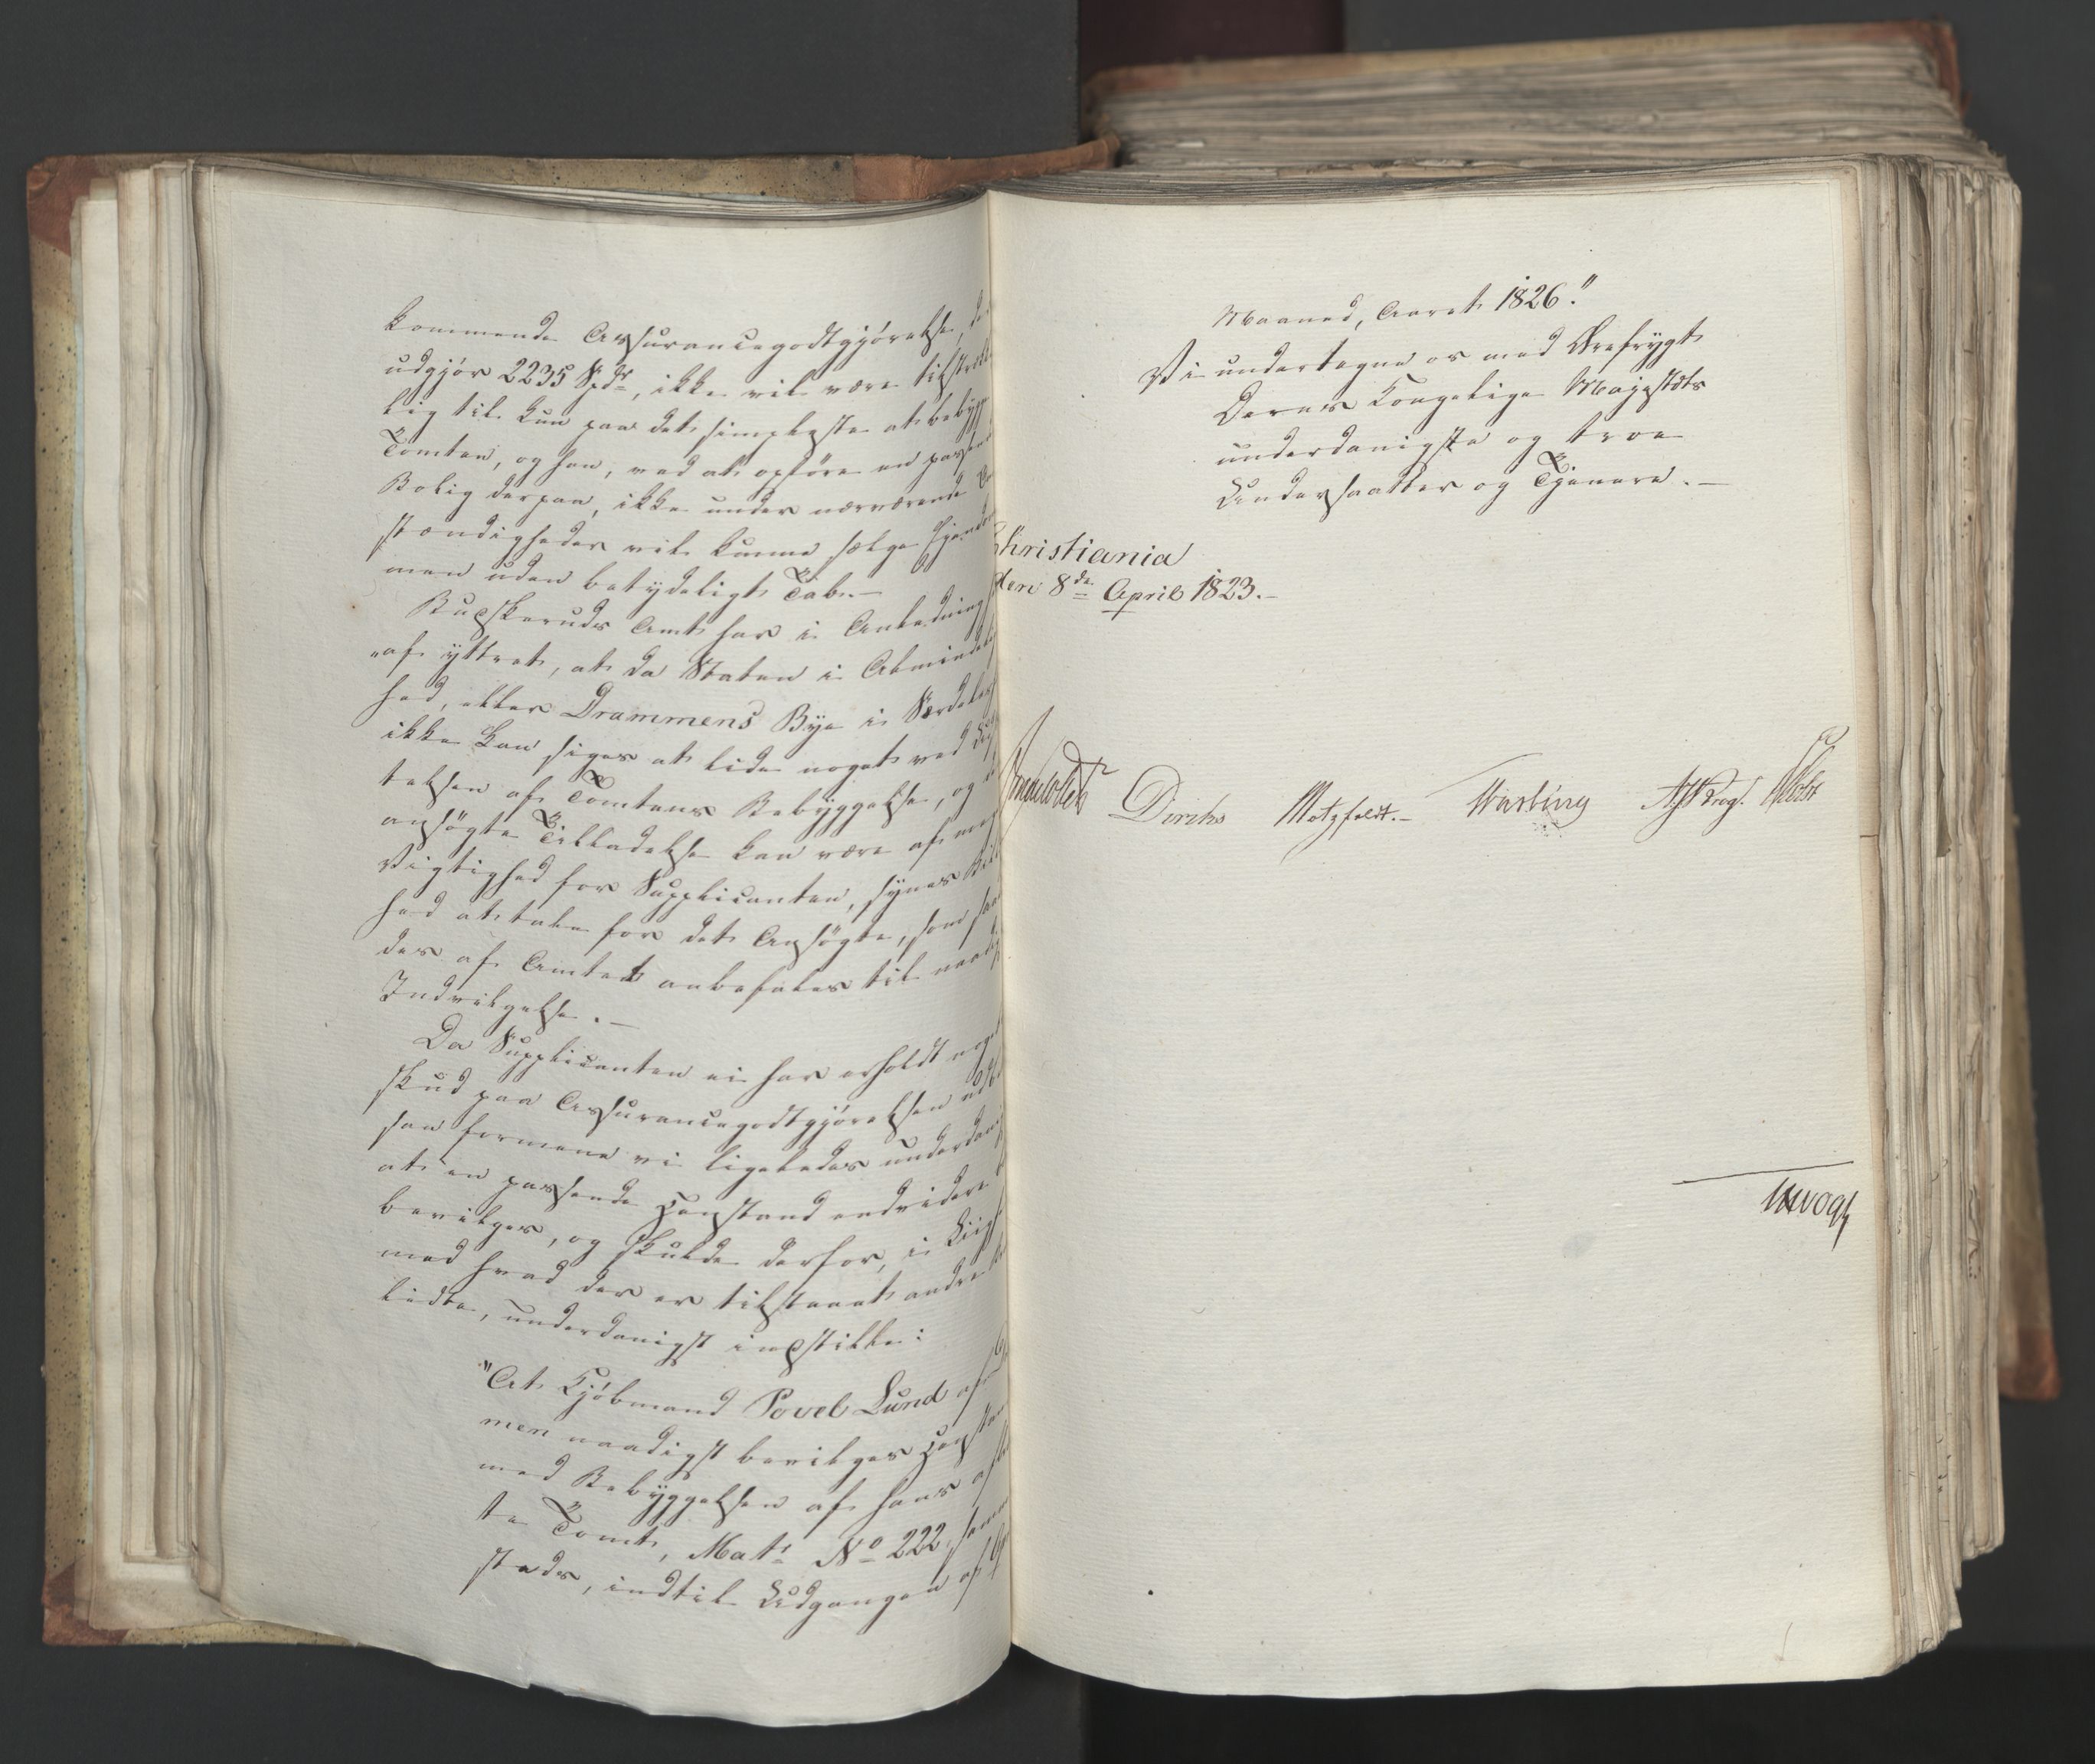 kommende Assurancegodtgjörelse,
udgjör 2235 Spdr, ikke vil være tilstræk
lig til kun paa det simpleste at bebygge
Tomten, og han, ved at opföre en passen
Bolig derpaa, ikke under nærværende
stændigheder vil kunne sælge Eyendom
men uden betydeligt Tab.—
Buskeruds Amt har i Anledning
"af yttret, at da Staten i Almindelig
hed, eller Drammens Bye i Særdeles
ikke kan siges at lide noget ved
telsen af Tomtens Bebyggelse, og
ansögte Tilladelse kan være af
Vigtighed for Supplicanten, synes Bil
hed at tale for det Ansögte, som saa
des af Amtet anbefales til naadig
Indvilgelse.—
Da Supplicanten ei har erholdt noget
skud paa Assurancegodtgjörelsen
saa formene vi ligeledes underdanig
at en passende Henstand endvidere
bevilges, og skulde derfor, i Liig
med hvad der er tilstaaet andre
lidte, underdanigst indstille:
"At Kjöbmand Povel Lund af
men naadigst bevilges Henstan
med Bebyggelsen af hans
te Tomt, Matr No 222, samme
steds, indtil Udgangen af
Maaned, Aaret 1826."
Vi undertegne os med Ærefrygt
Deres Kongelige Majestæts
underdanigste og troe
Undersaatter og Tjenere.—
Christiania
den 8de April 1823.—
Diriks Motzfeldt.— Holst